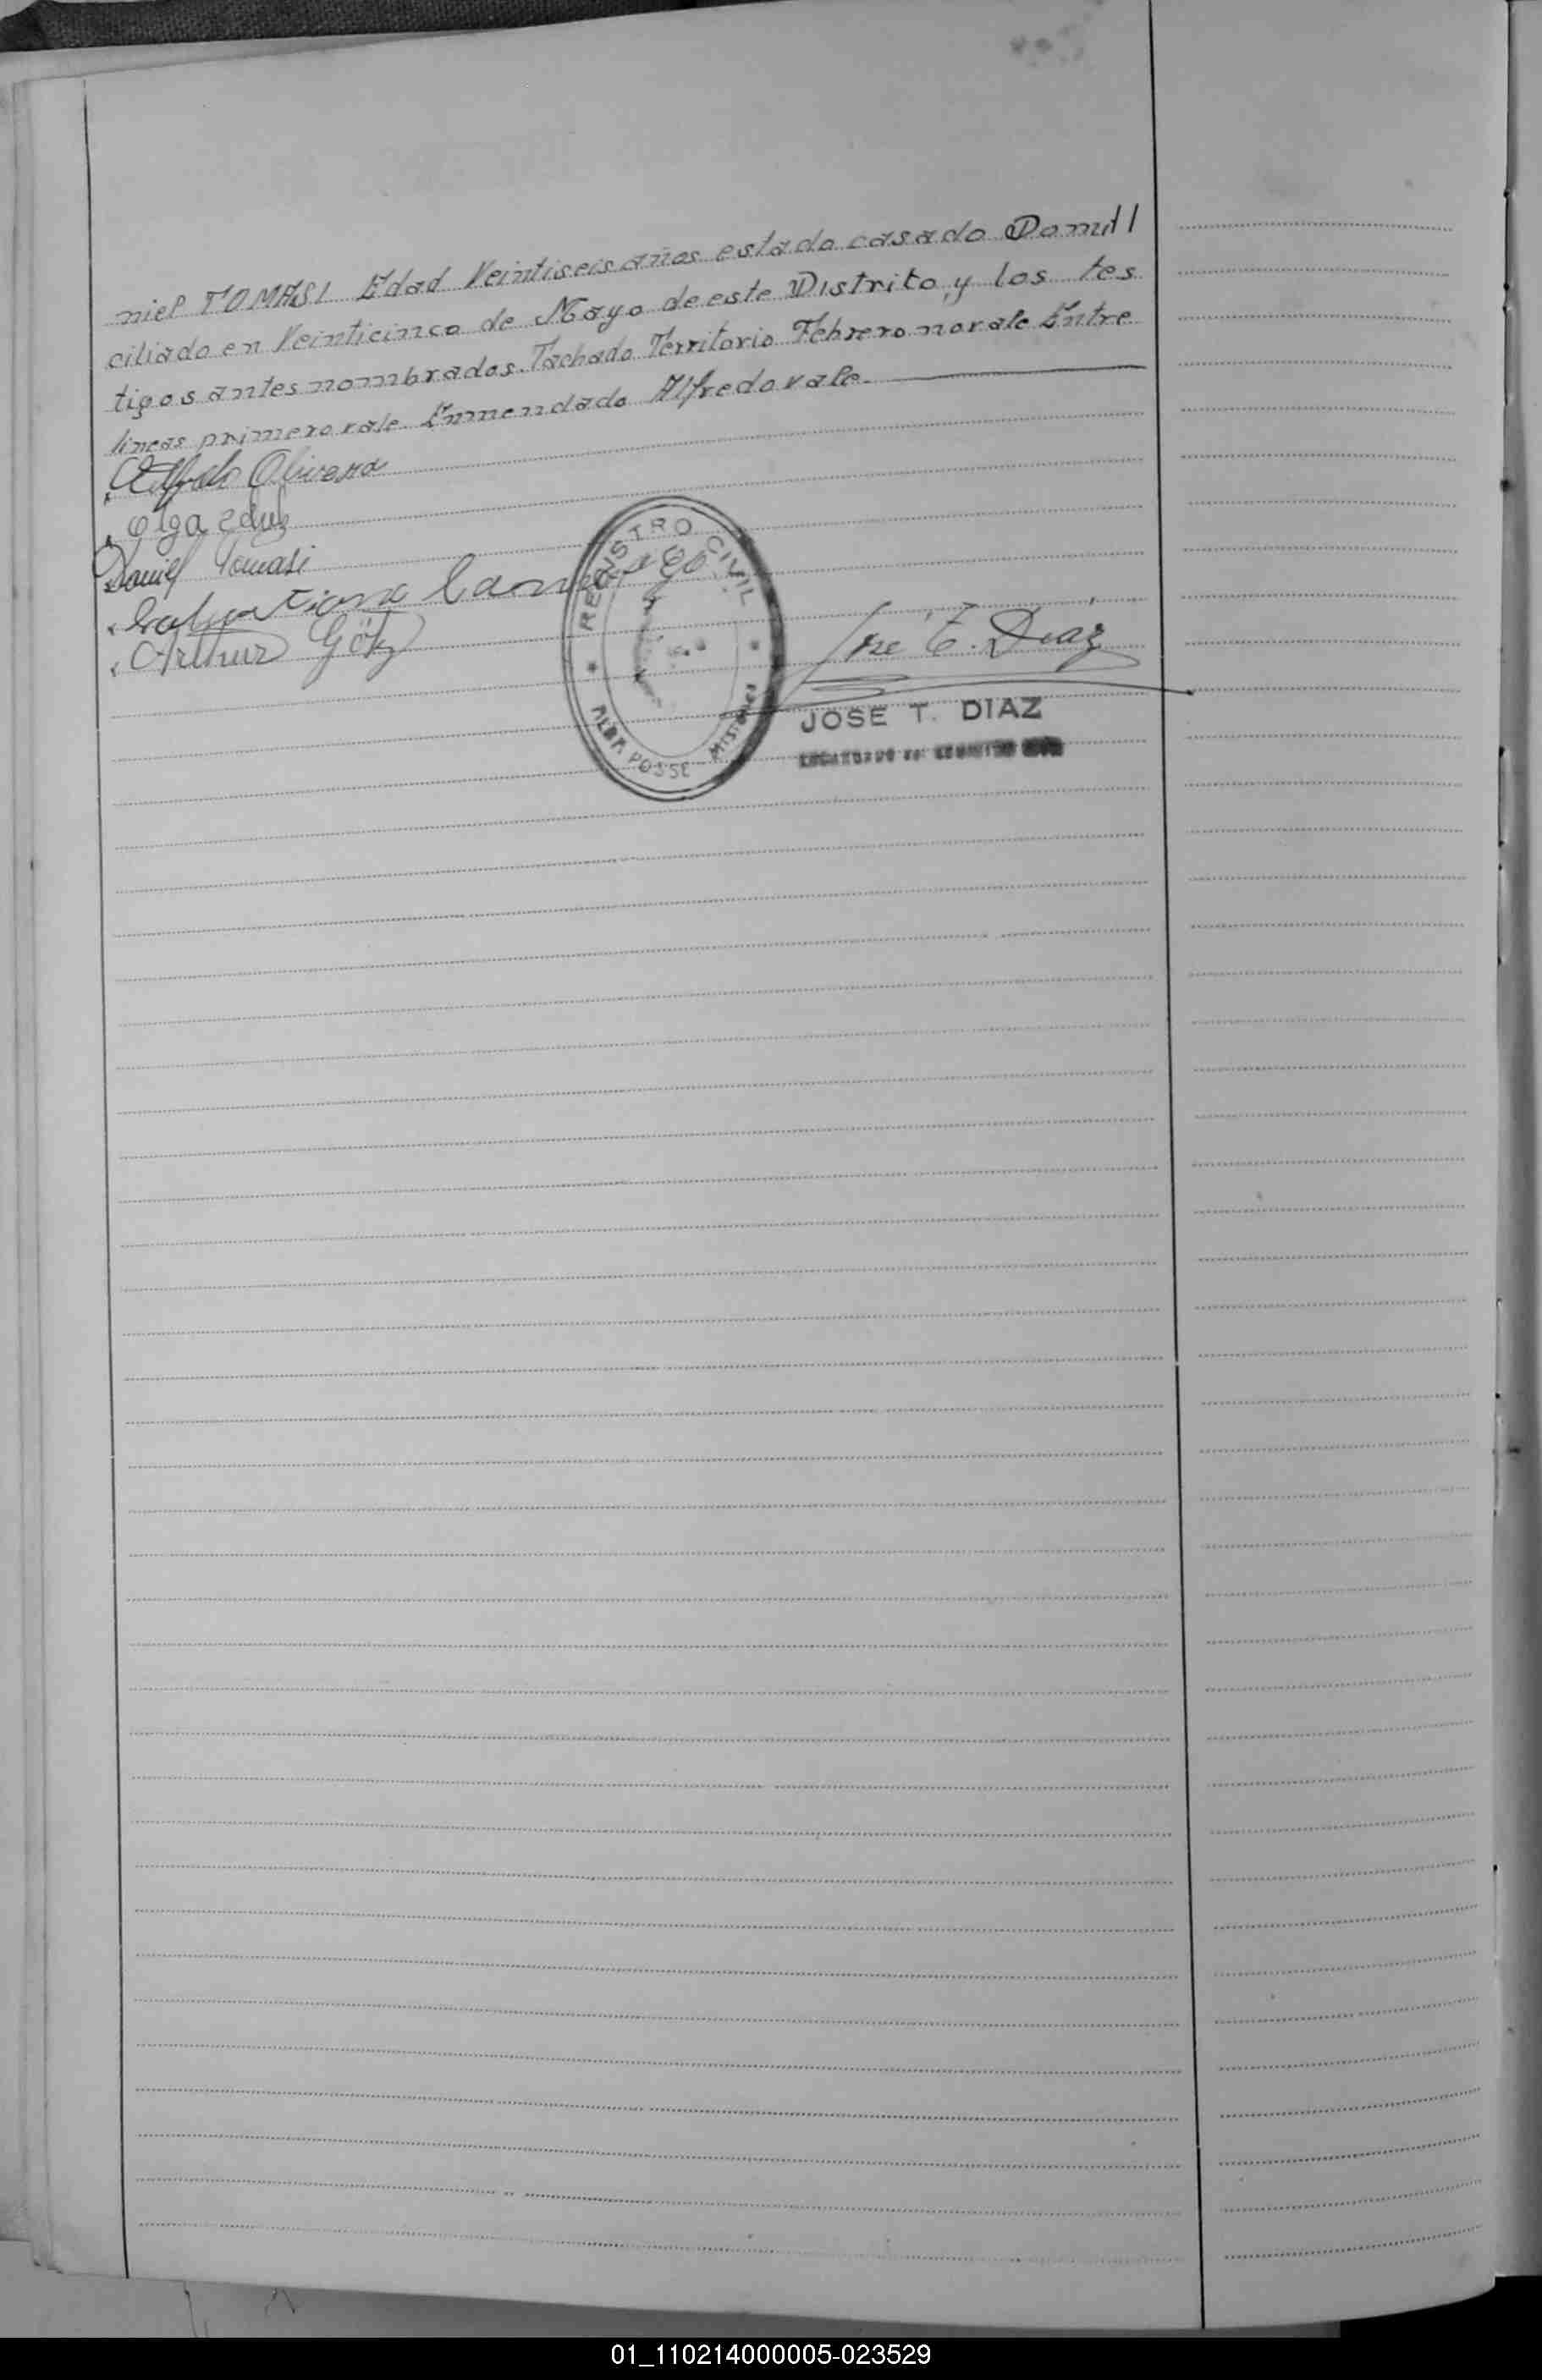 niel TOMASI Edad Veintiseis años estado casado Domill
ciliado en Veinticinco de Mayo de este Distrito y los tes
tigos antes nombrados. Tachado Territorio Febrero no vale Entre
lineas primero vale Enmendado Alfredo vale
Alfredo Olivera
Olga
Daniel Tomasi
Arthur Götz
REGISTRO CIVIL
ALBA POSSE MISIONES
José T. Diaz
JOSE T. DIAZ
01_110214000005-023529